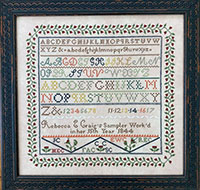 ABCDEFGHIJKLMNOPQRSTUVW
XYZ & abcdefghijklmnopqrstuvwxyz
ABCDEFGHIJKLM
NOPQRSTUVWXYZ
ABCDEFGHIJKLM
NOPQRSTUVWXY
Z& 1234567 11 12 13 14 15 17
Rebecca C Craig's Sampler Work'd
in her 15th Year 1844